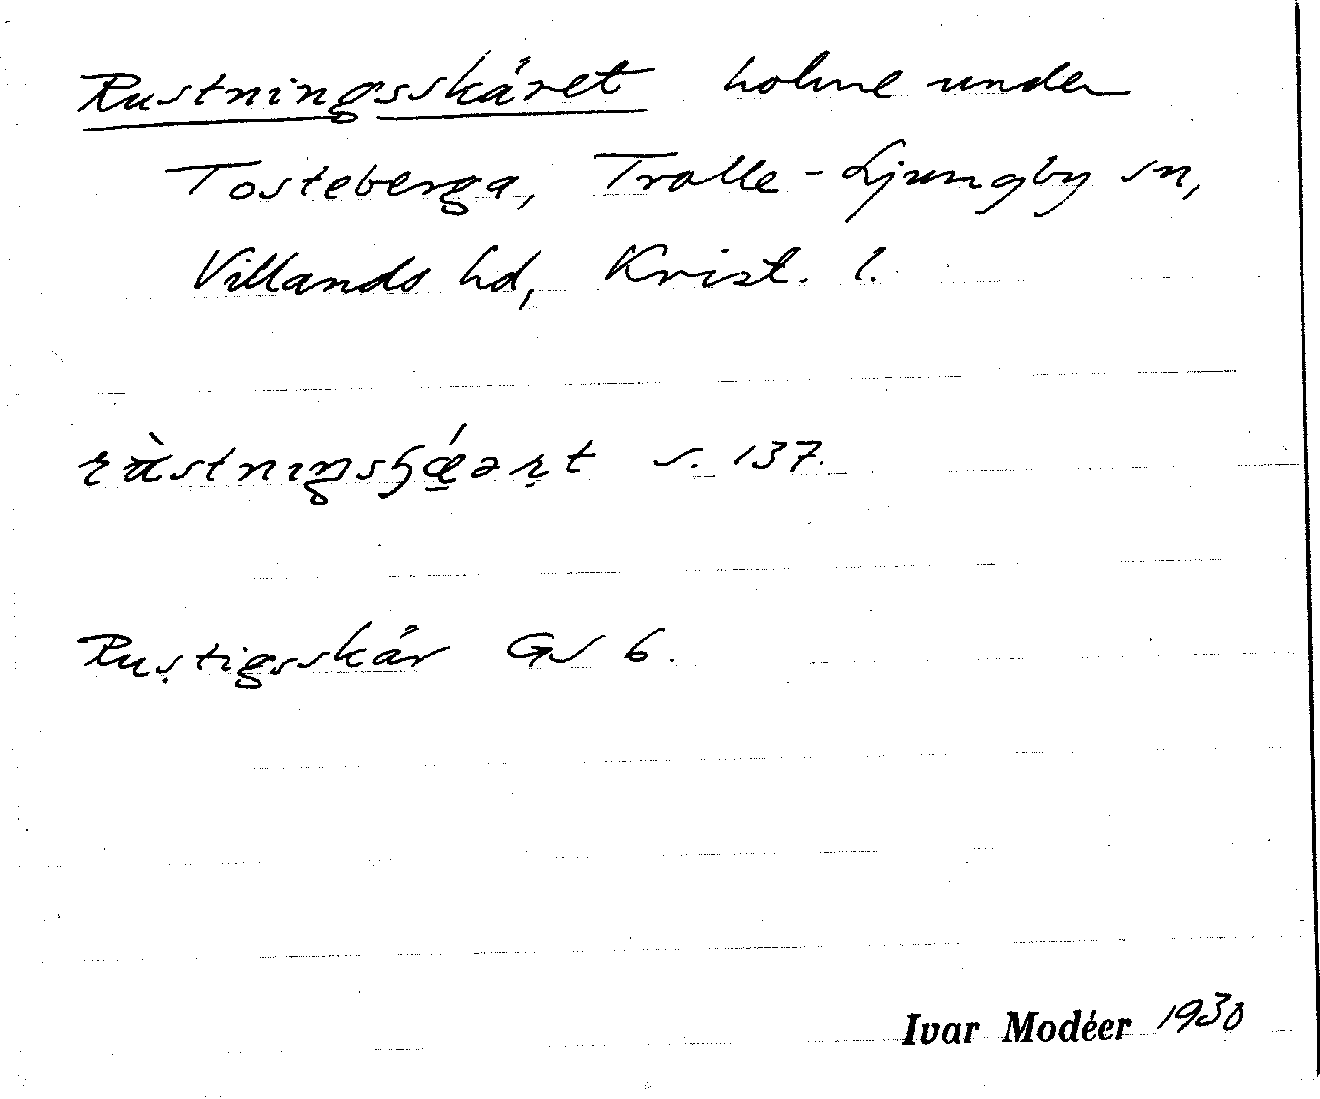 Rustningsskäret holme under
Tosteberga, Trolle-Ljungby sn,
Villands hd, Krist. l.
s. 137.
Rustigsskär GS 6.
Ivar Modéer 1930